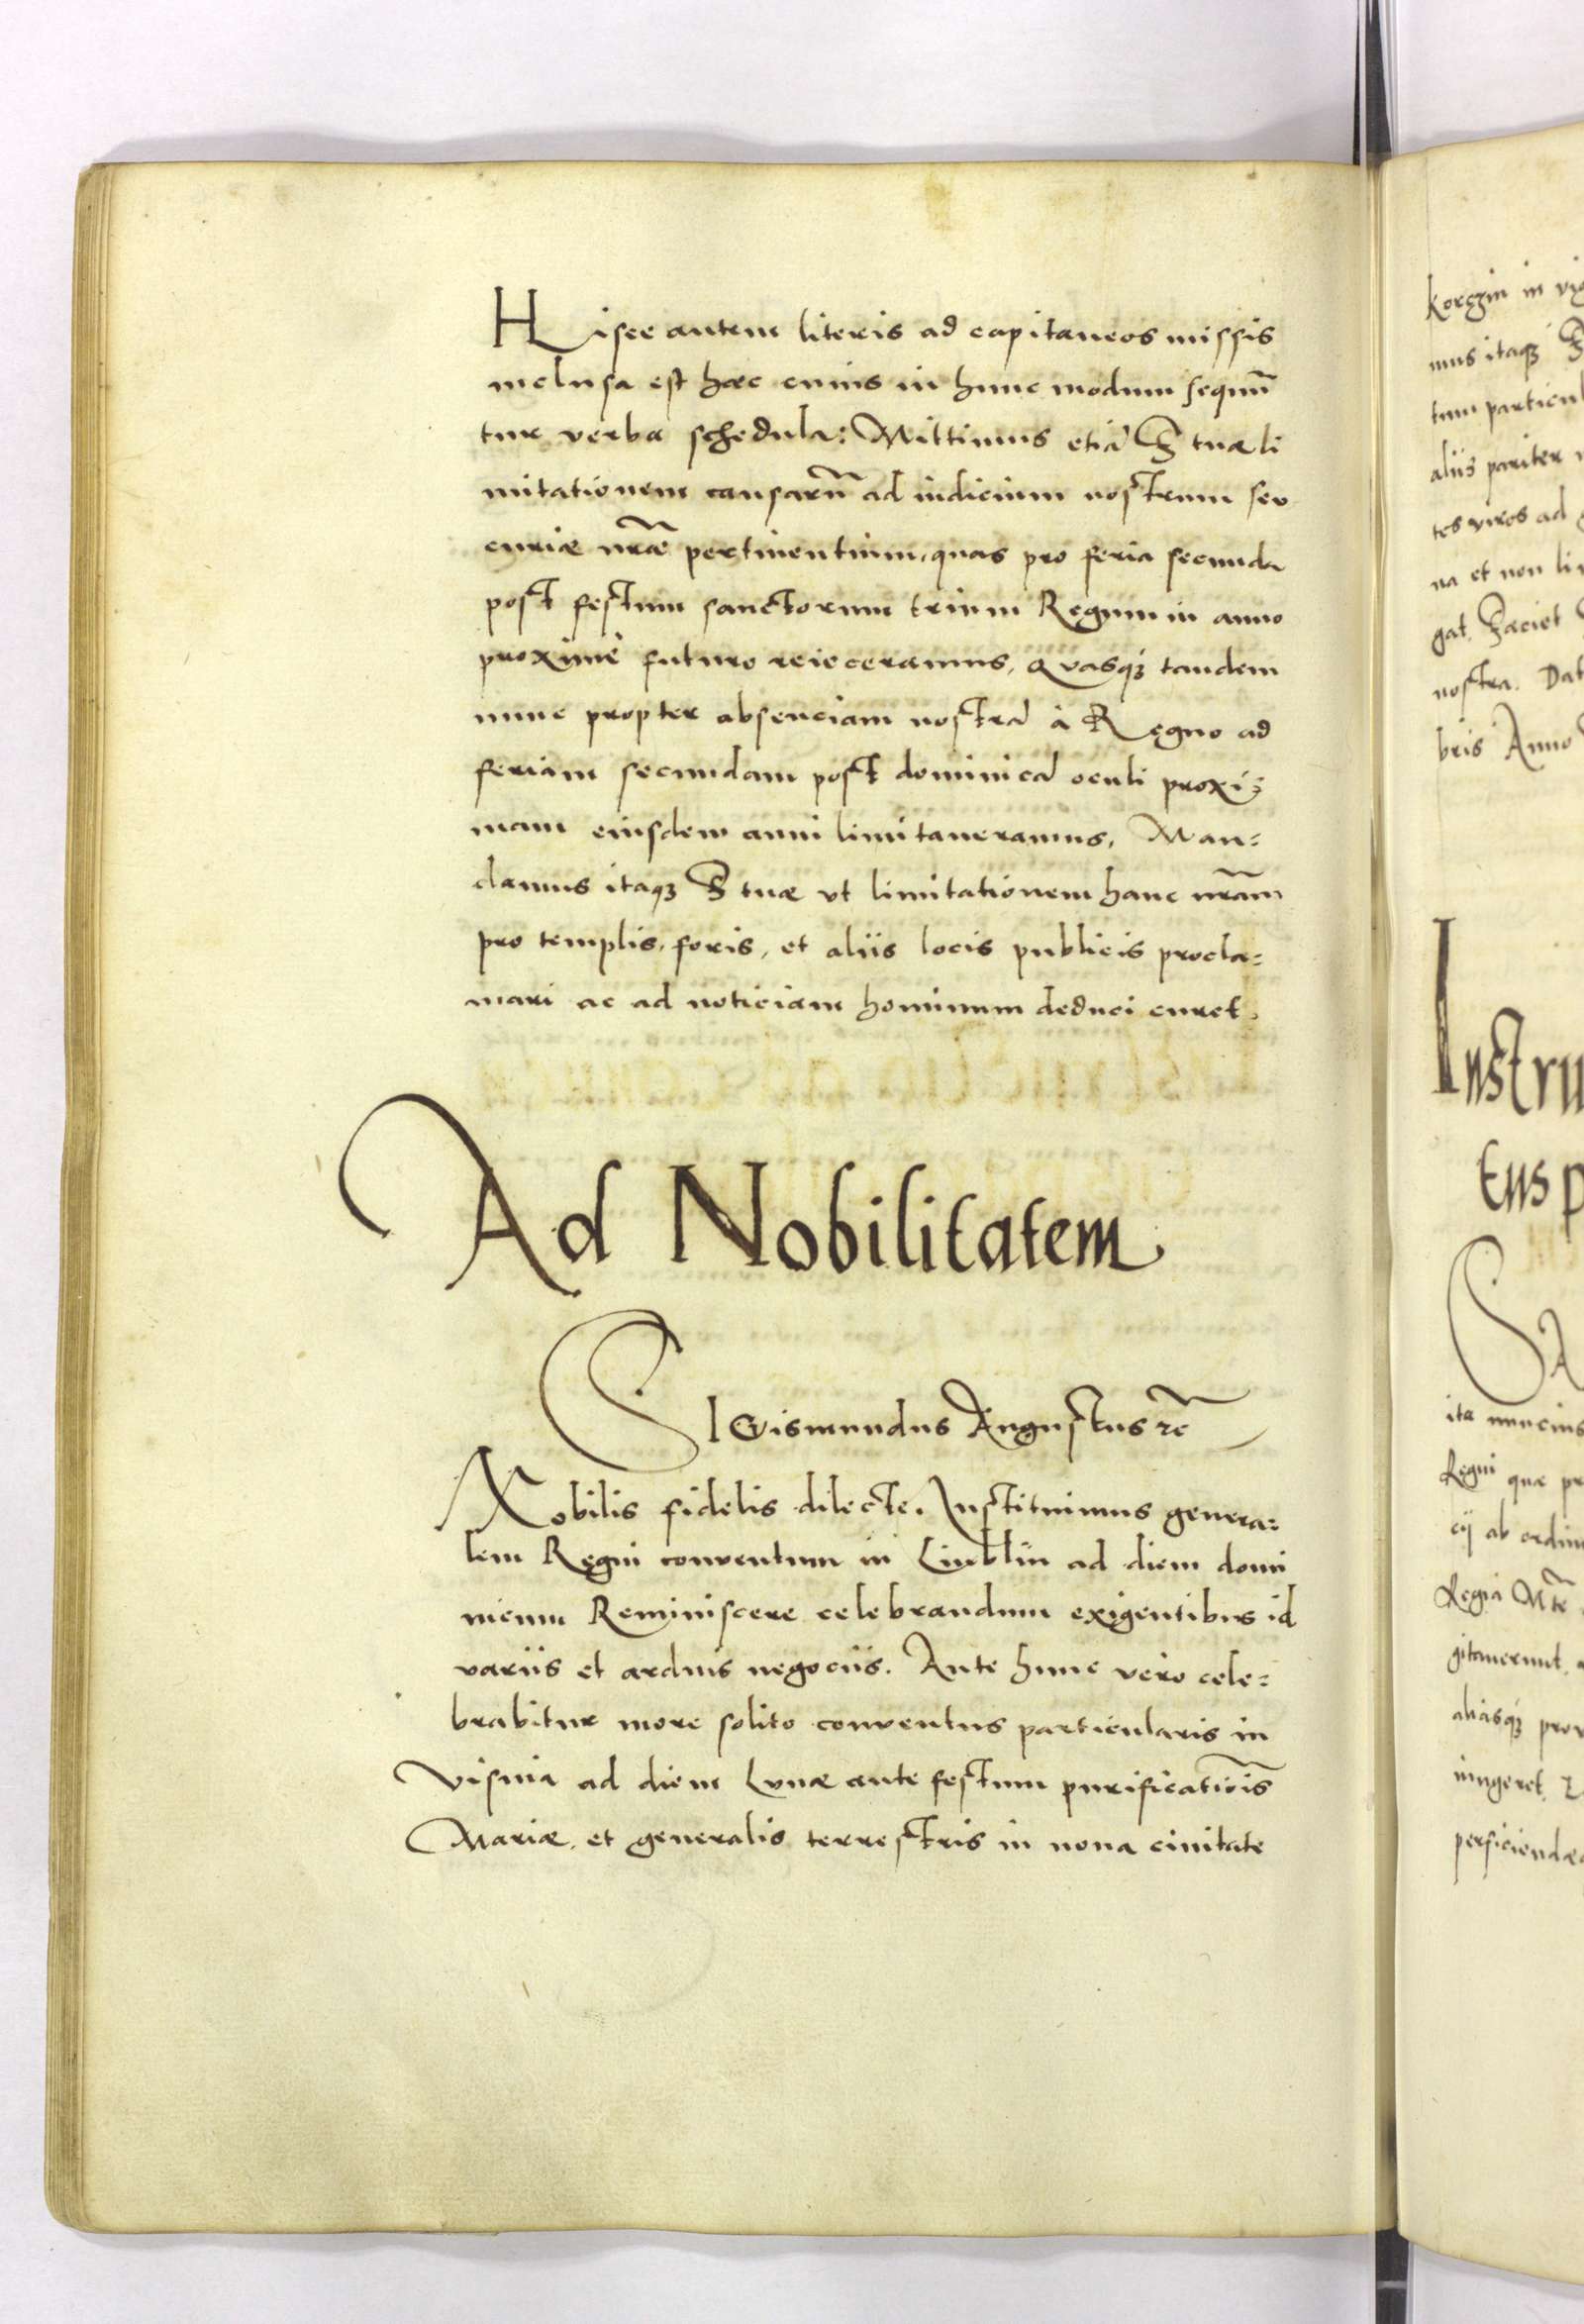 Hisce autem literis ad capitaneos missis
inclusa est haec cuius in hunc modum sequun̄
tur verba schedula: Mittimus etiā S tuæ li
mitationem causarū ad iudicium nostrum seu
curiæ nr̄æ pertinentium, quas pro feria secunda
post festum sanctorum trium Regum in anno
proximè futuro reieceramus, Quasqꝫ tandem
nunc propter absenciam nostrā à Regno ad
feriam secundam post dominicā oculi proxi=
mam eiusdem anni limitaueramus, Man=
damus itaqꝫ S tuæ vt limitationem hanc nr̄am
pro templis, foris, et aliis locis publicis procla=
mari ac ad noticiam hominum deduci curet.
Ad Nobilitatem
SIGismundus Augustus ꝛc̄
Nobilis fidelis dilecte. Instituimus genera=
lem Regni conuentum in Liublin ad diem domi
nicum Reminiscere celebrandum exigentibus id
variis et arduis negociis. Ante hunc vero cele=
brabitur more solito conuentus particularis in
Visnia ad diem Lunæ ante festum purificatiōis
Mariæ, et generalis terrestris in noua ciuitate
korczin in vi
mus itaqꝫ S
tum particul
aliis pariter
tes viros ad
na et non li
gat. Faciet
nostra. Dat
bris Anno
Instru
tus p
SA
ita nuncius
Regni quæ pr
cij ab ordin
Regia Mte
gitauerunt
aliasqꝫ prov
iungeret
perficiendæ